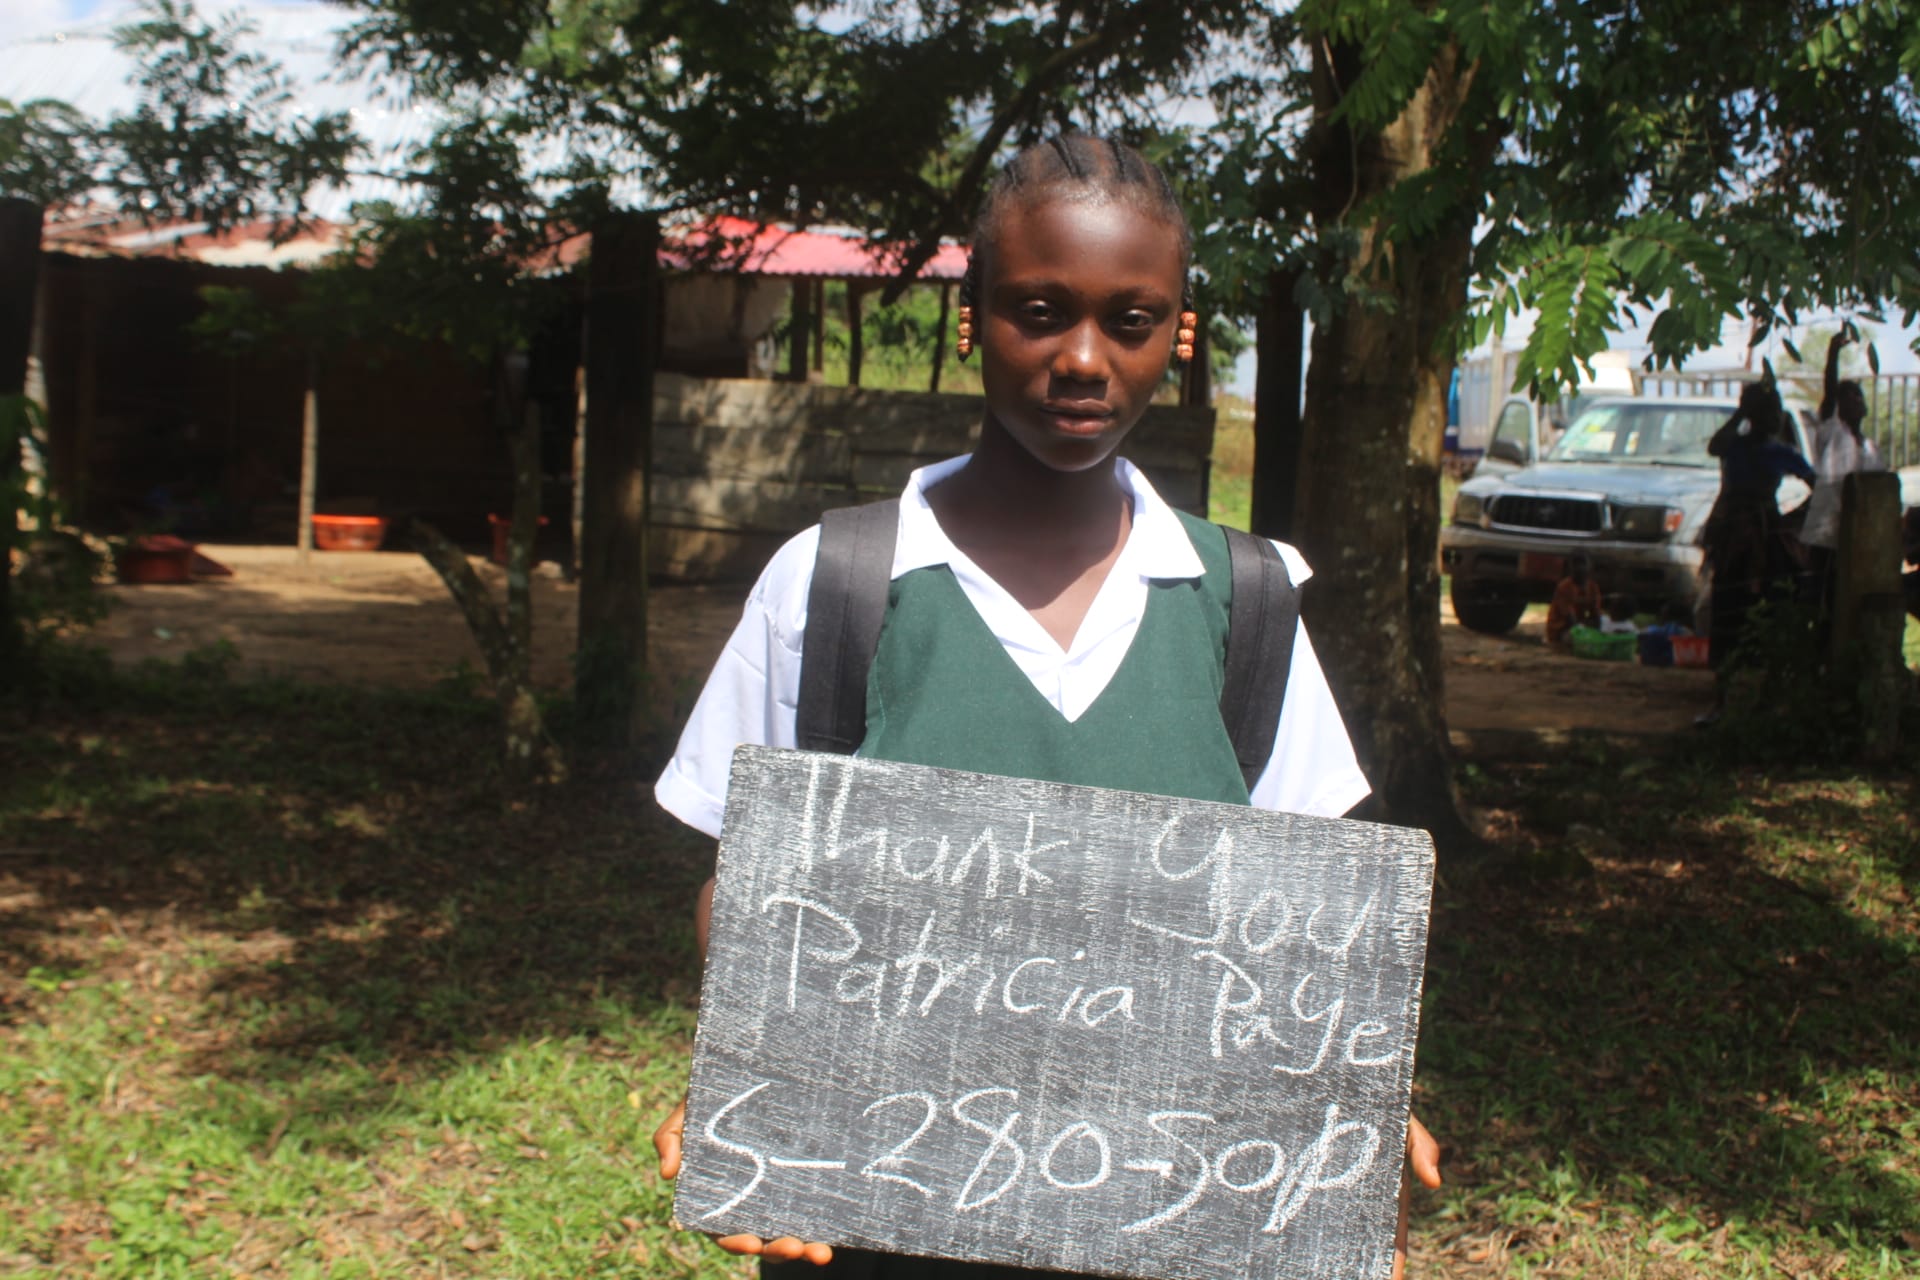 Thank you
Patricia Paye
S-280-Sop